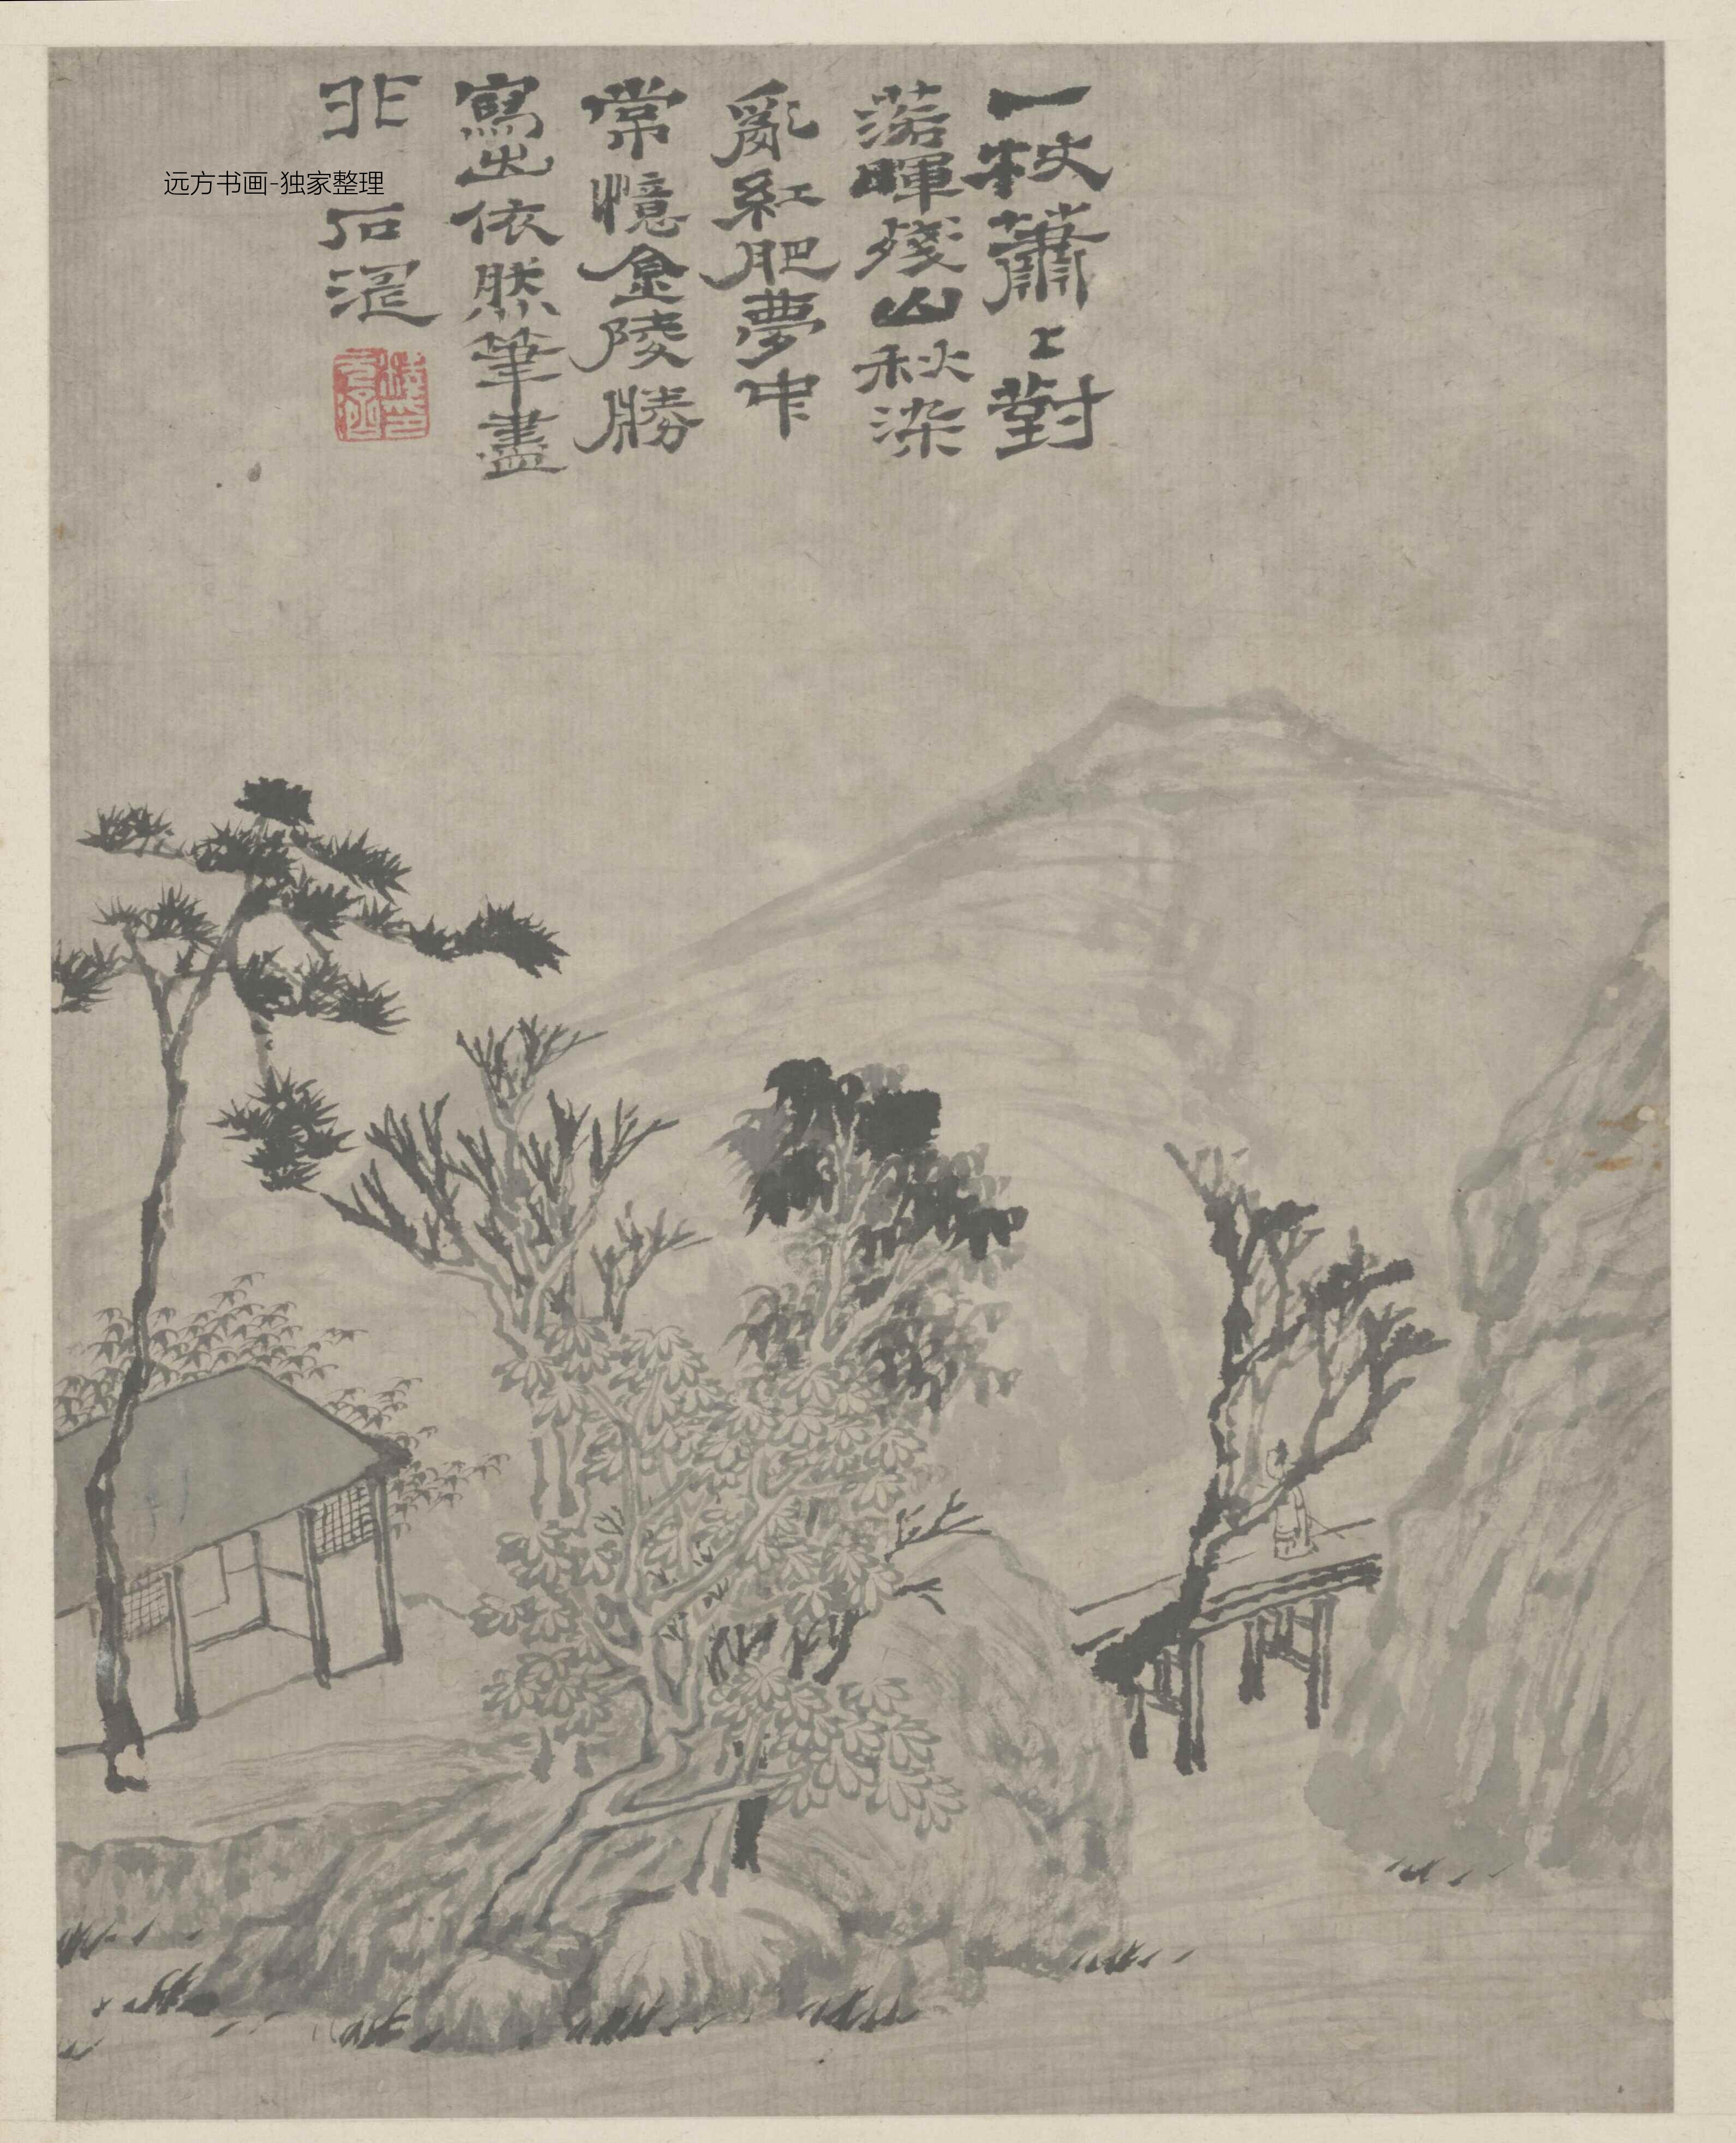 一杖蕭〻對
落暉殘山秋染
亂紅肥夢中
常憶金陵勝
寫出依然筆盡
非
石濤
远方书画-独家整理